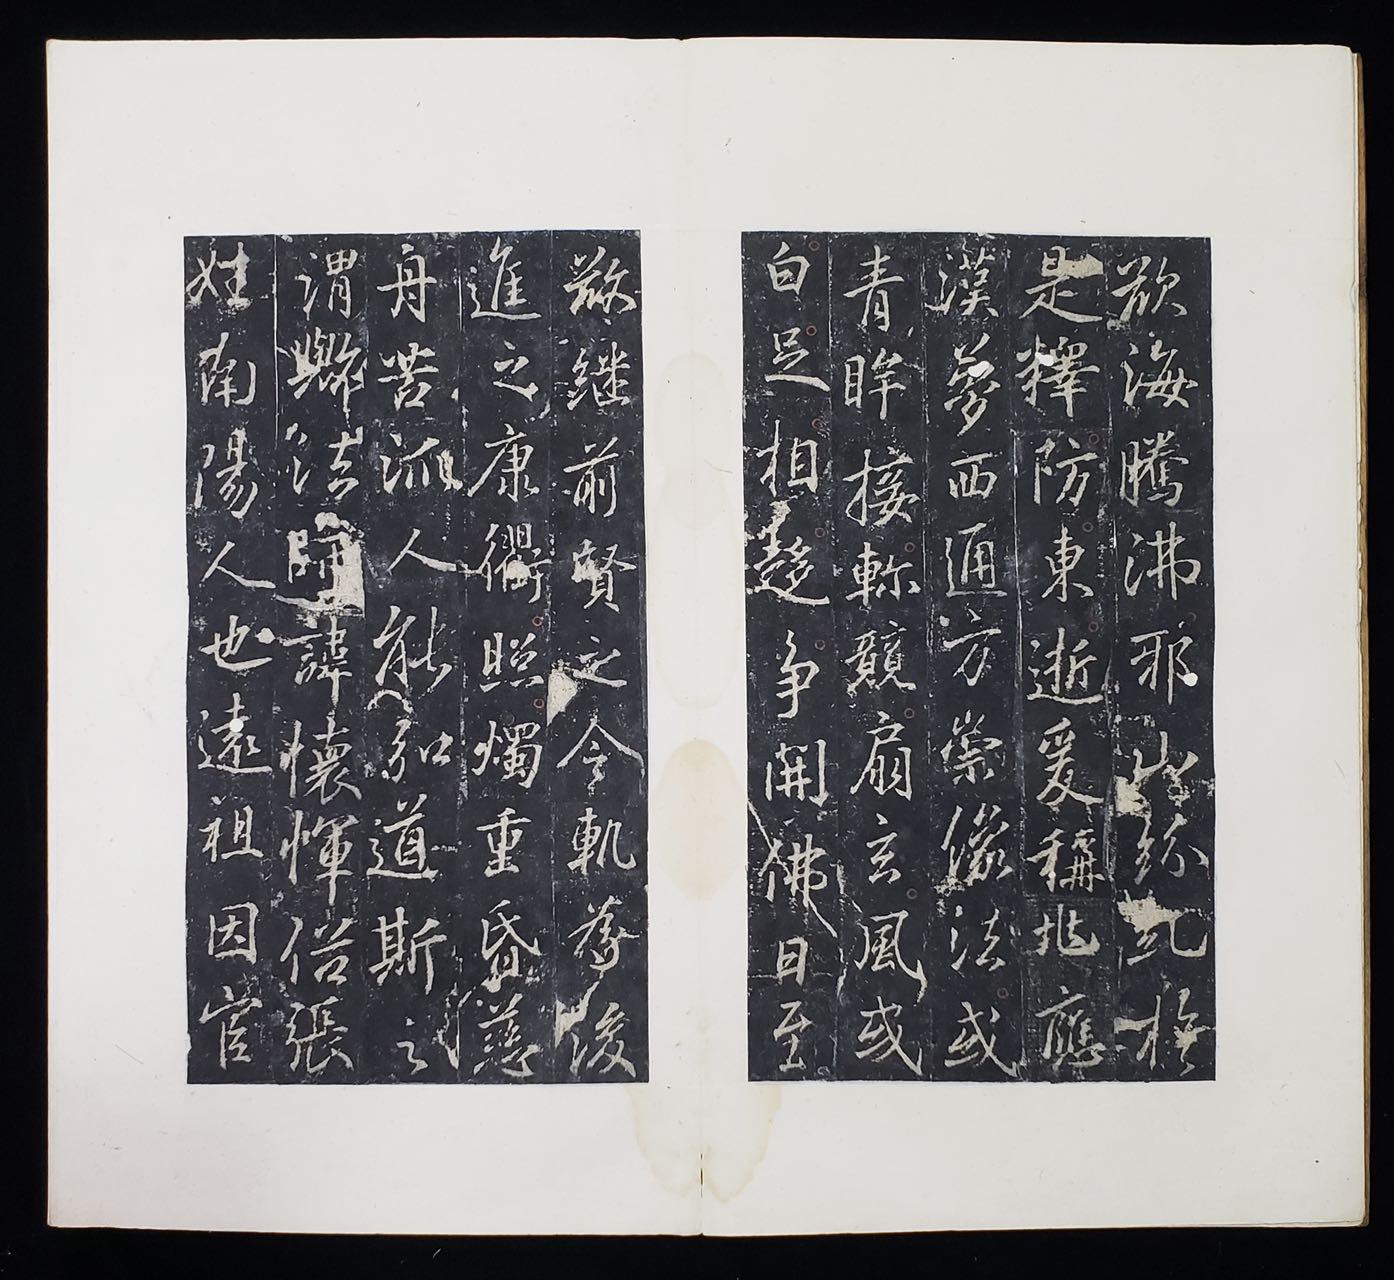 欲海騰沸邪山紛糺於
是釋防東逝爰稱兆應
漢夢西通方崇像法或
青眸接軫競扇玄風或
白足相趍爭開佛日至
敬繼前賢之令軌為後
進之康衢照燭重昏慈
舟苦派人能弘道斯之
謂歟法師諱懷惲俗張
姓南陽人也遠祖因宦